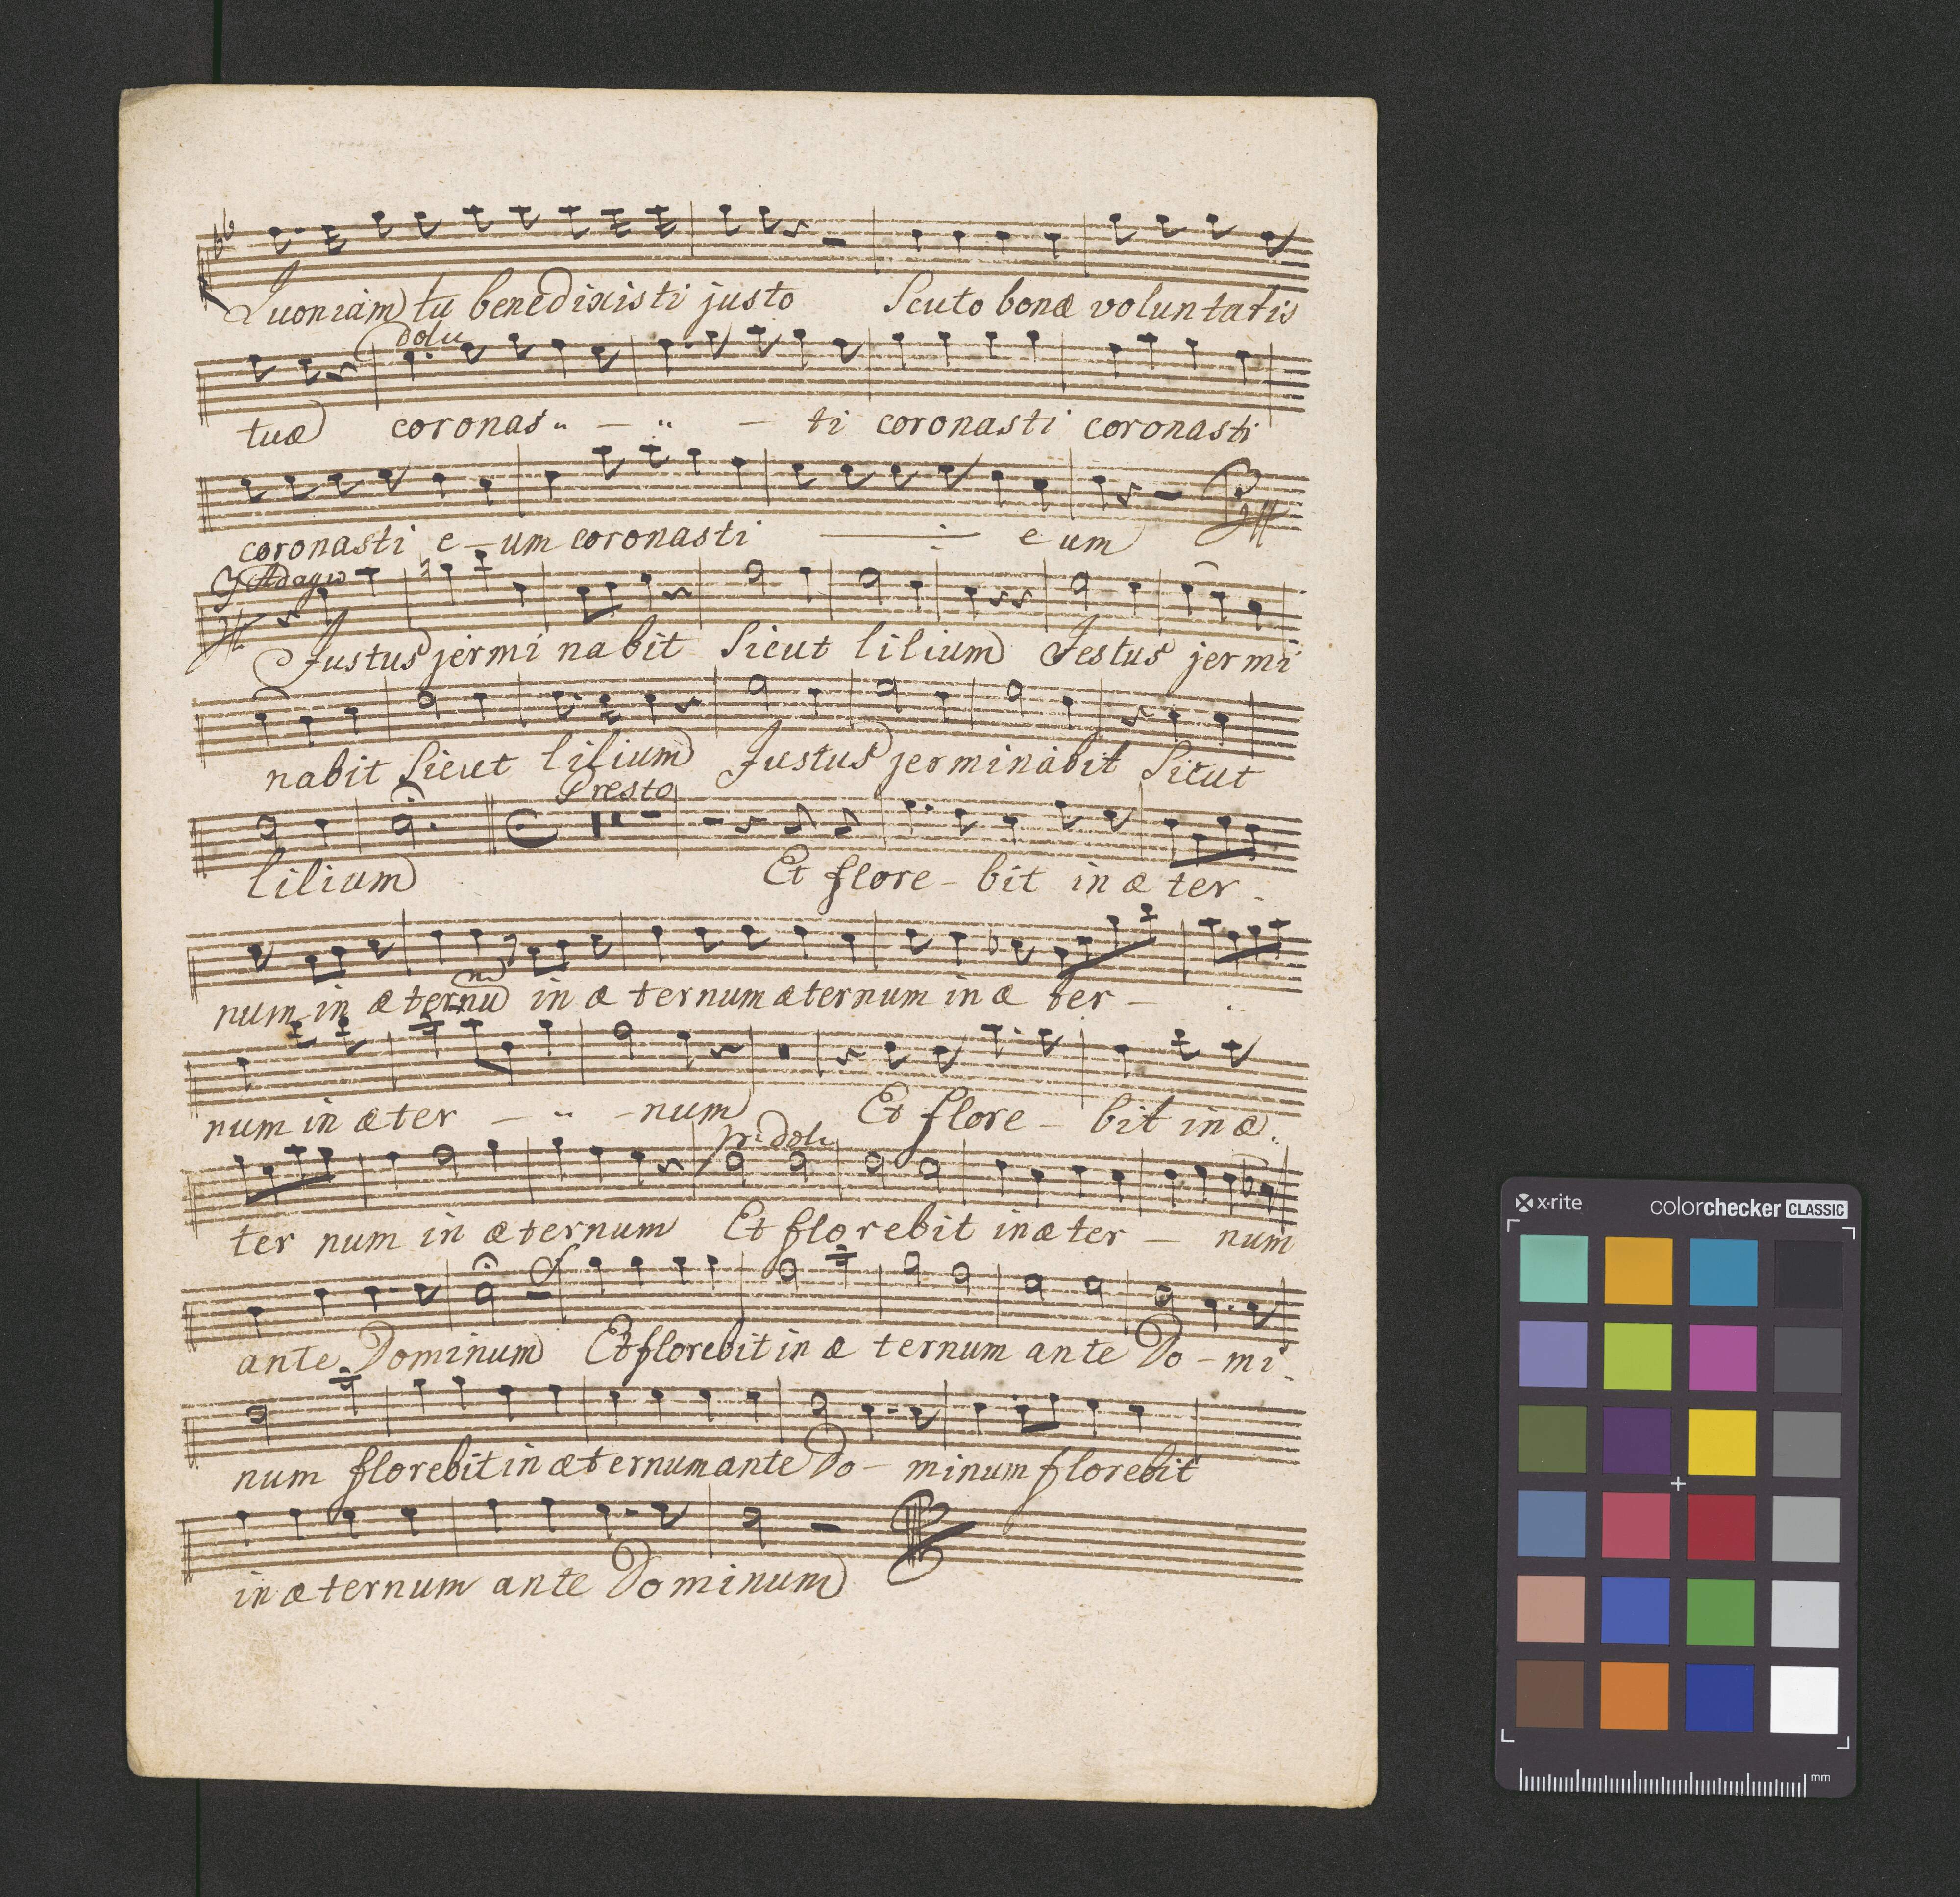 Quoniam tu benedixisti justo Scuto bonæ voluntatis
dolce
tuæ coronas - - - ti coronasti coronasti
coronasti e - um coronasti e um
Adagio
Justus jerminabit Sicut lilium Jestus jermi
nabit Sicut lilium Justus jerminabit Sicut
Presto
lilium Et flore - bit in æ ter -
num in æternū in æ ternum æternum in æ ter -
num in æter - - num Et flore - bit in æ
ter num in æternum Et florebit in æ ter - num
f
ante Dominum Et florebit in æ ternum ante Do - mi
num florebit in æternum ante Do - minum florebit
in æternum ante Dominum
x-rite
colorchecker CLASSIC
mm